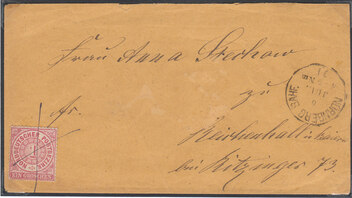 Frau Anna Stechow
zu
fr.
Reichenhall in Baiern
bei Kitzinger 73.
NÜRNBERG BAHNH.
NORDDEUTSCHER POSTBEZIRK
EIN GROSCHEN